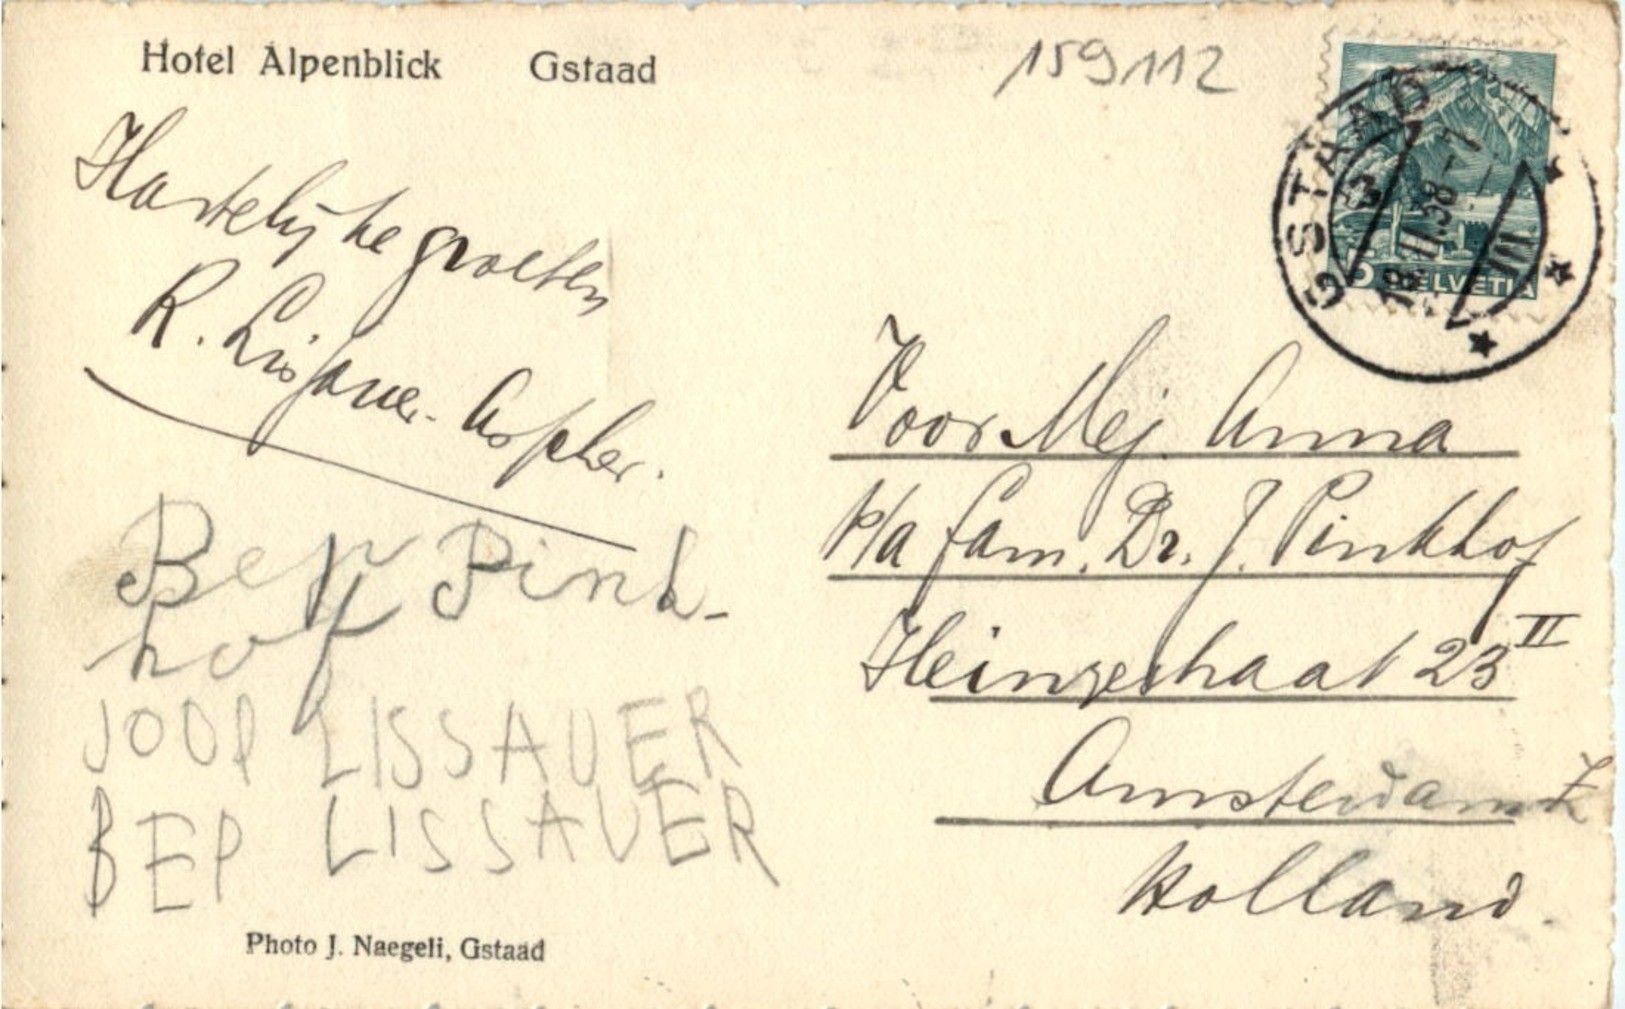 Hotel Alpenblick Gstaad
159112
Hartelijke groeten
R. Lissauer-
Bep Pink-
hof
JOOP LISSAUER
BEP LISSAUER
Photo J. Naegeli, Gstaad
GSTAAD
18.II.38
HELVETIA
Voor Mej. Anna
p/a fam. Dr. J. Pinkhof
Heinzestraat 23 II
Amsterdam Z
Holland.